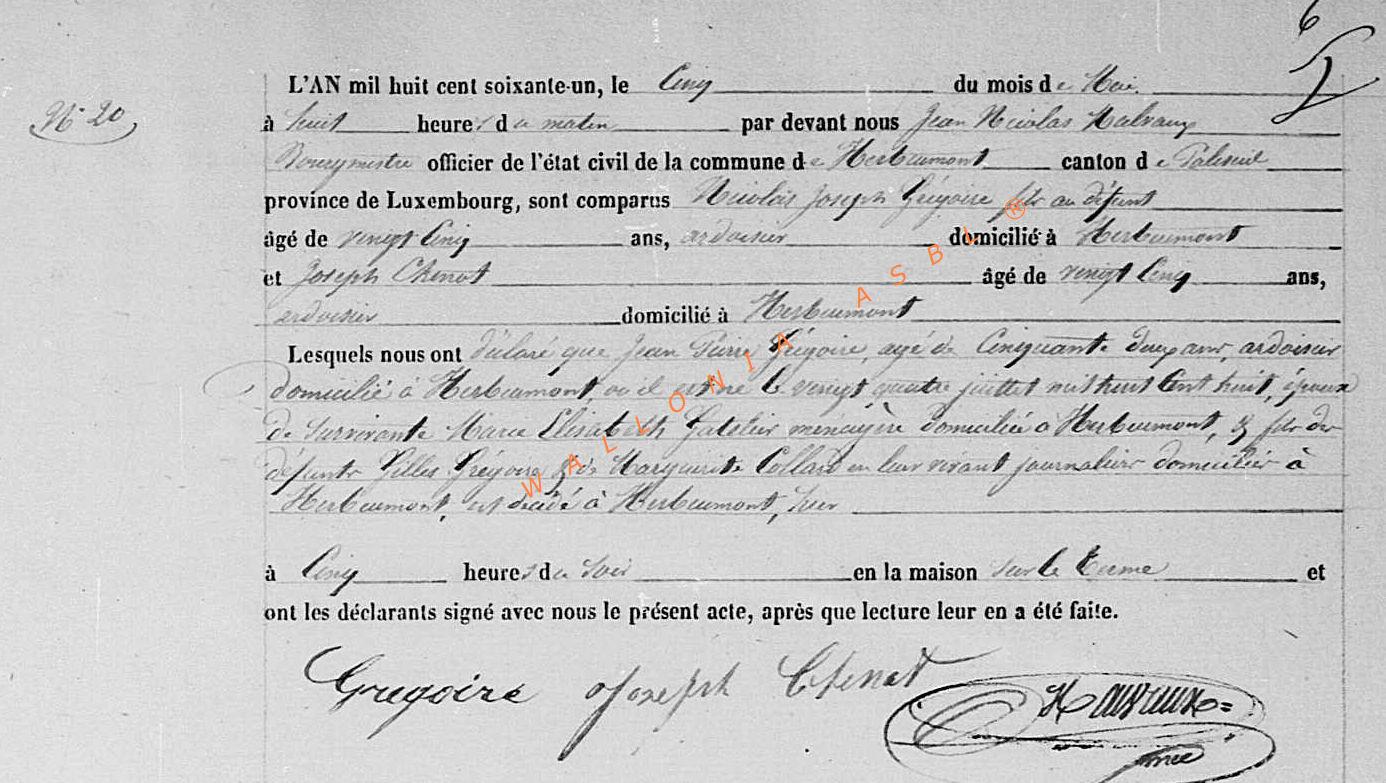 6
L'AN mil huit cent soixante-un, le Cinq du mois de Mai.
N° 20
à huit heures du matin par devant nous Jean Nicolas Malvaux
Bourgmestre officier de l'état civil de la commune de Herbeumont canton de Paliseul
province de Luxembourg, sont comparus Nicolas Joseph Grégoire fils au défunt
âgé de vingt Cinq ans, ardoisier domicilié à Herbeumont
et Joseph Chenot âgé de vingt Cinq ans,
ardoisier domicilié à Herbeumont
Lesquels nous ont déclaré que Jean Pierre Grégoire, agé de Cinquante deux ans, ardoisier
domicilié à Herbeumont, où il est né le vingt quatre juillet mil huit Cent huit, époux
de survivante Marie Elisabeth ménagère domiciliée à Herbeumont, & fils des
défunts Gilles Grégoire & de Marguerite Collard en leur vivant journaliers domiciliés à
Herbeumont, est décédé à Herbeumont, hier
à Cinq heures du soir en la maison sur le Terme et
ont les déclarants signé avec nous le présent acte, après que lecture leur en a été faite.
Gregoire Joseph Chenot Malvaux
WALLONIA ASBL ®